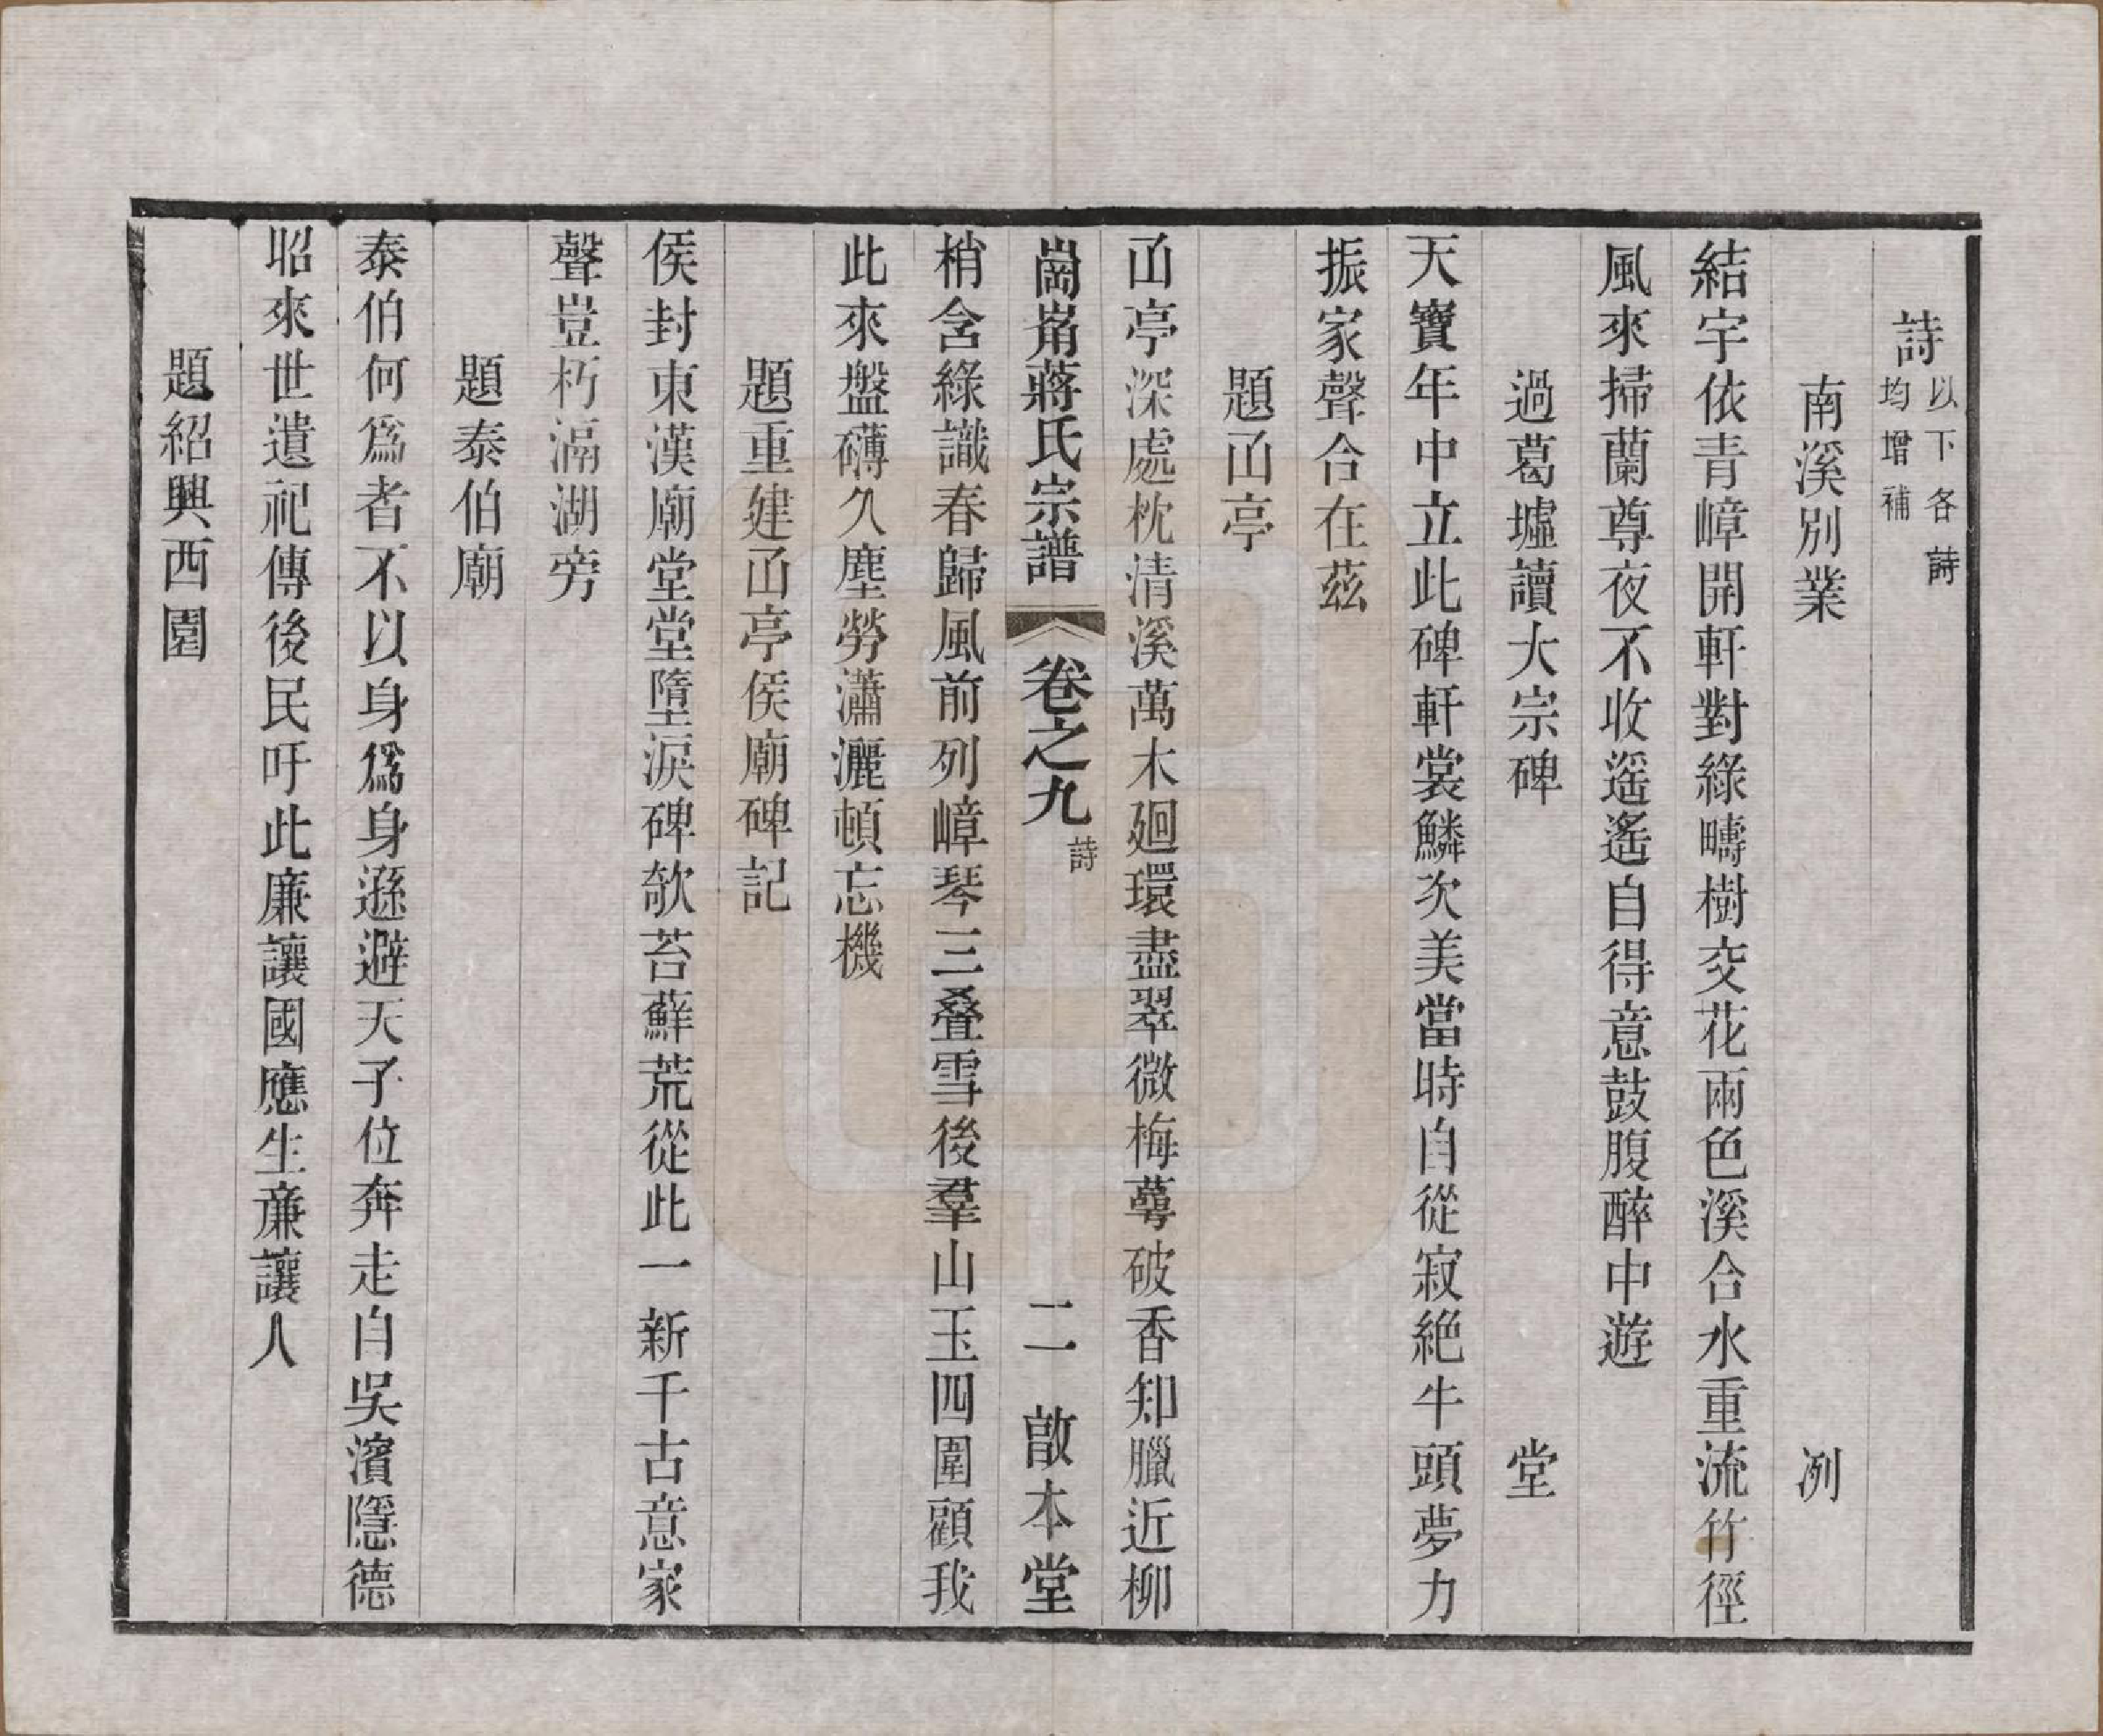 詩以下各詩均增補
南溪別業　洌
結宇依青嶂開軒對綠疇樹交花兩色溪合水重流竹徑
風來掃蘭尊夜不收遥遙自得意鼓腹醉中遊
過葛墟讀大宗碑　堂
天寶年中立此碑軒裳鱗次美當時自從寂絕牛頭夢力
振家聲合在茲
題凾亭
凾亭深處枕清溪萬木廻環盡翠微梅蕚破香知臘近柳
崗崗蔣氏宗譜　卷之九　詩　二　啟本堂
梢含綠識春歸風前列嶂琴三叠雪後羣山玉四圍顧我
此來盤礴久塵勞瀟灑頓忘機
題重建凾亭侯廟碑記
侯封東漢廟堂堂墮淚碑欹苔蘚荒從此一新千古意家
聲豈朽滆湖旁
題泰伯廟
泰伯何爲者不以身爲身遜避天子位奔走自吳濱隱德
昭來世遺祀傳後民吁此廉讓國應生亷讓人
題紹興西園